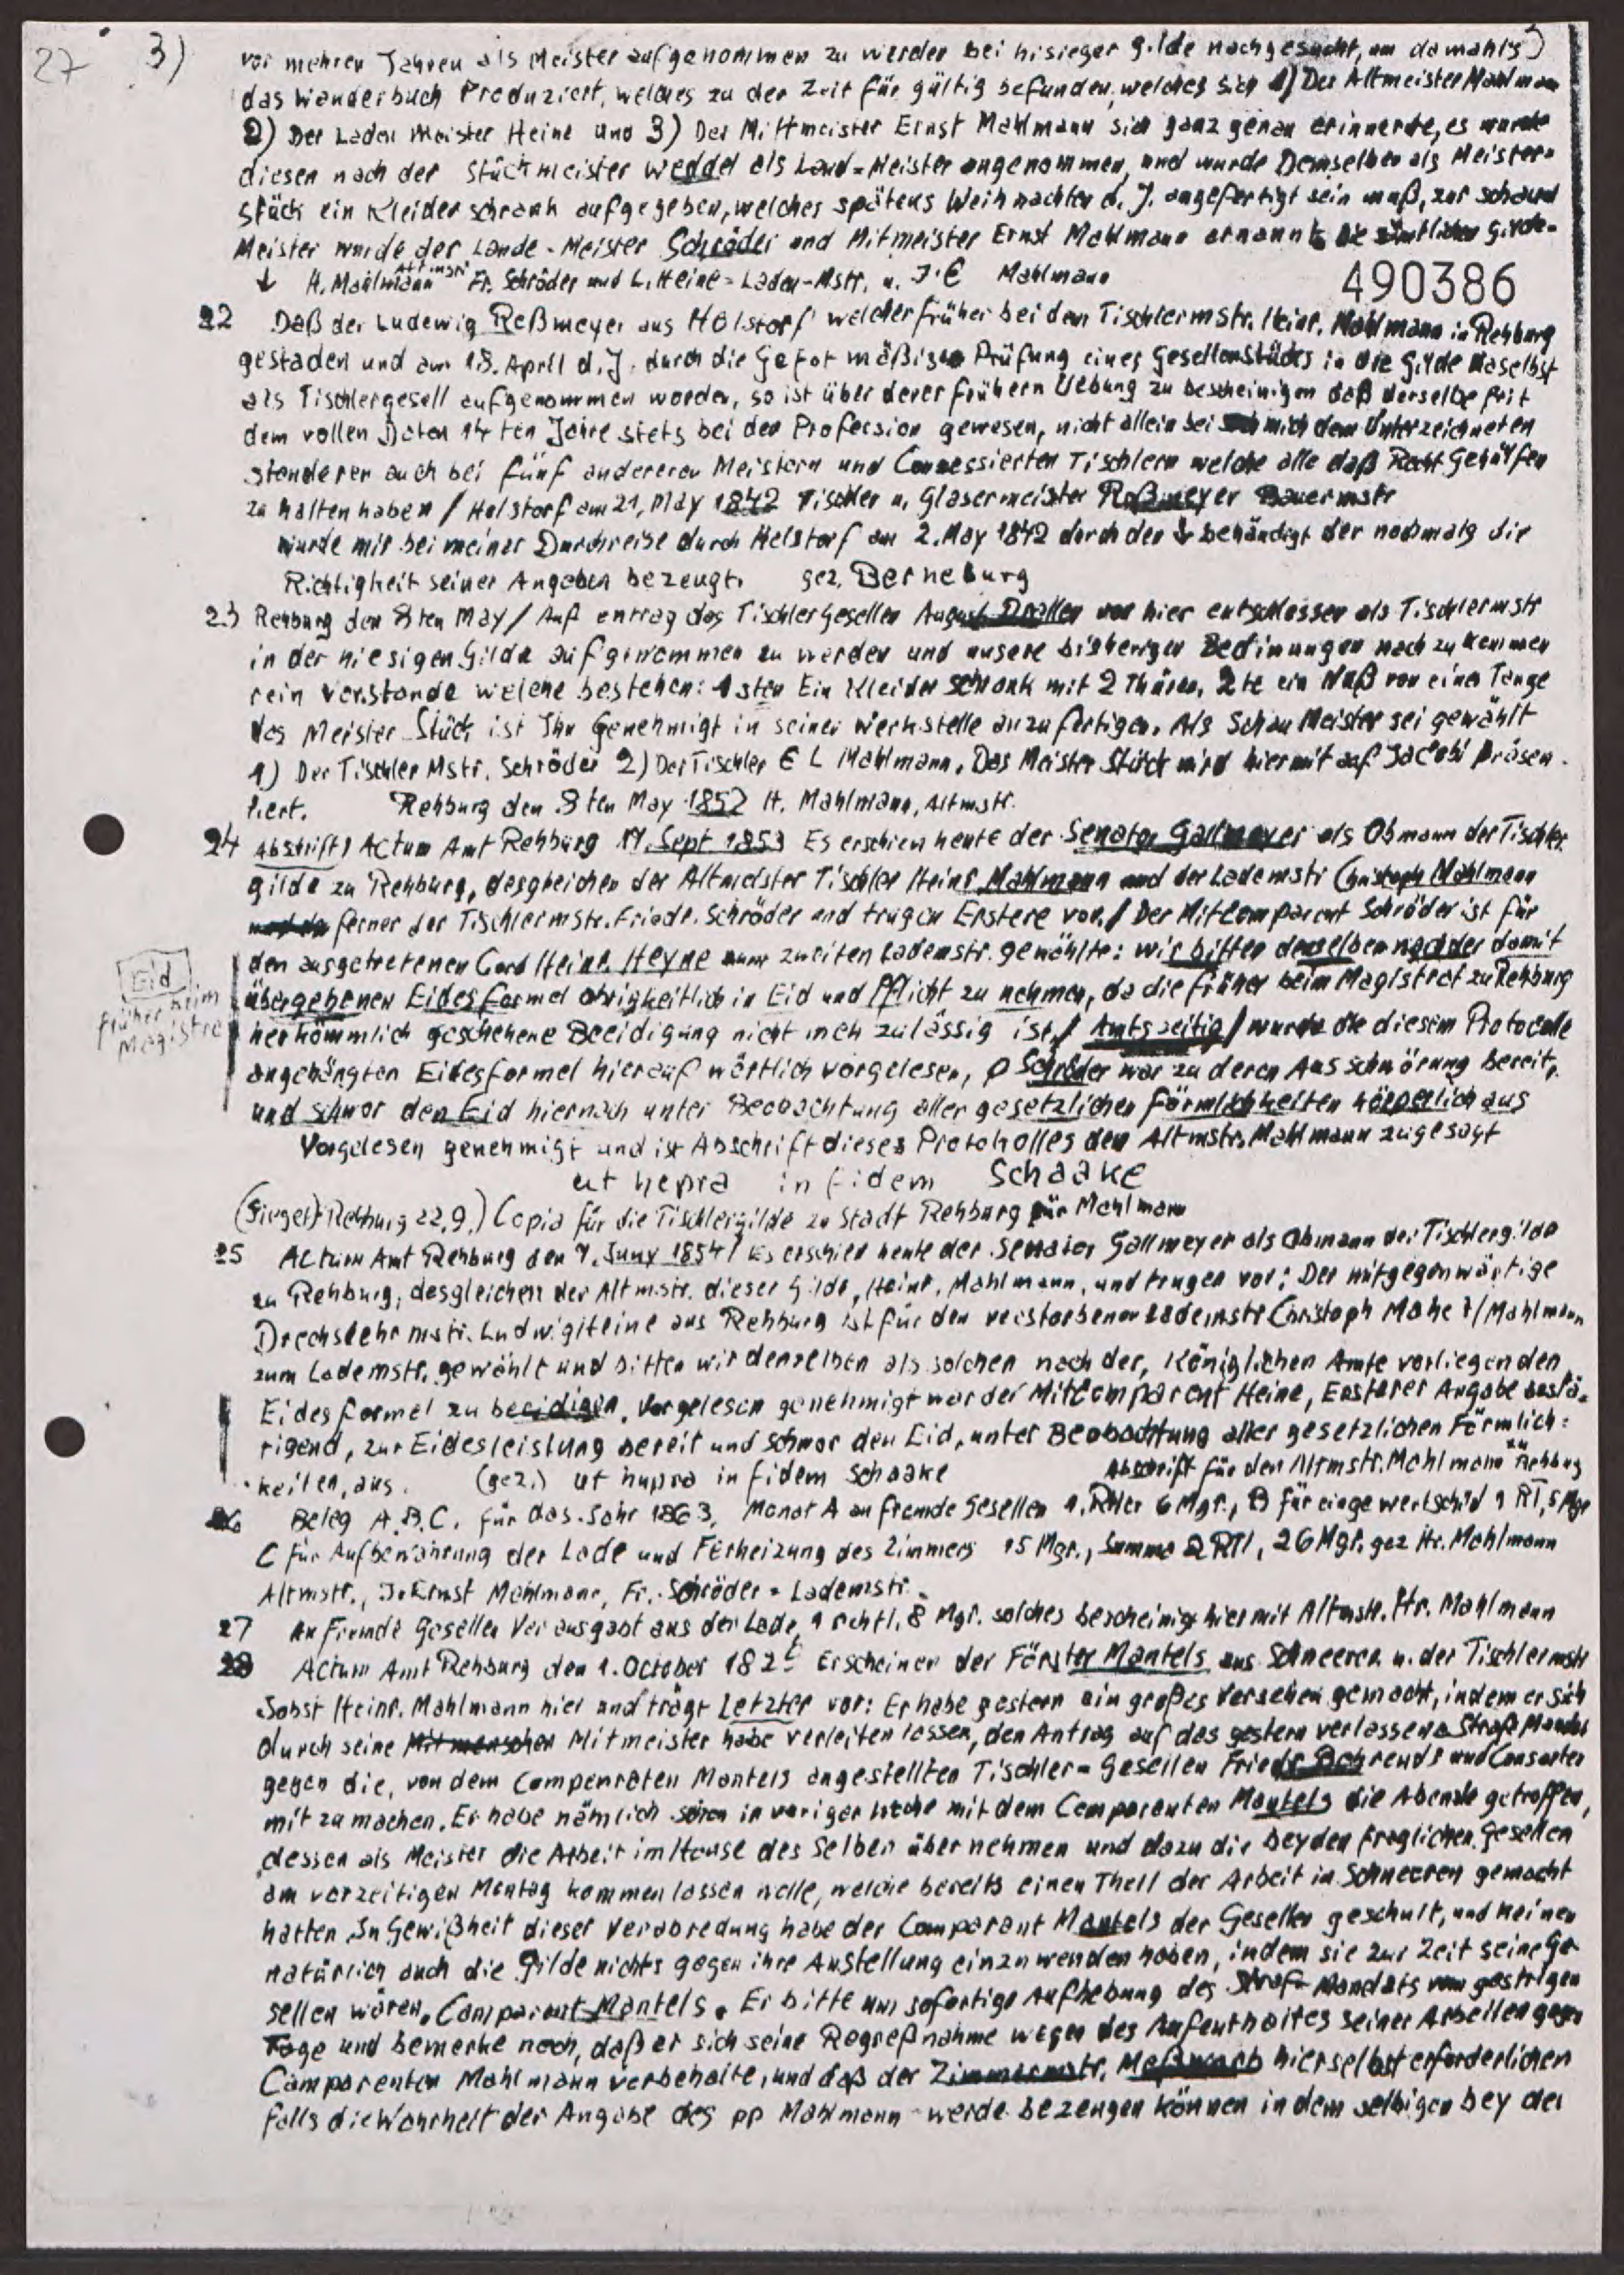 27 3) vor mehren Jahren als Meister aufgenommen zu werden bei hisieger Gilde nachgesucht, um damahls)
das Wanderbuch Produziert, welches zu der Zeit für gültig befunden, welches sich 1) Der Altmeister Mahlmann
2) Der Laden Meister Heine und 3) Der Mittmeister Ernst Mahlmann sich ganz genau erinnerte, es wurde
diesen nach der Stückmeister Weddel als Land-Meister angenommen, und wurde Demselben als Meister-
stück ein Kleiderschrank aufgegeben, welches spätens Weihnachten d. J. angefertigt sein muß, zur schaund
Meister wurde der Lande-Meister Schröder und Mitmeister Ernst Mahlmann ernannt Gilde-
↓ H. Mahlmann Altmstr Fr. Schröder und L. Heine = Laden-Mstr. u. J. E Mahlmann
490386
22 Daß der Ludewig Reßmeyer aus Holstorf welcher früher bei den Tischlermstr. Heinr. Mahlmann in Rehburg
gestaden und am 18. April d. J. durch die Prüfung eines Gesellenstücks in die Gilde daselbst
als Tischlergesell aufgenommen worden, so ist über derer frühern Uebung zu bescheinigen daß derselbe seit
dem vollen Daten 14 ten Jahre stets bei der Profession gewesen, nicht allein bei mich dem Unterzeichneten
sonderen auch bei fünf andereren Meistern und Conzessierten Tischlern welche alle daß Recht Gehülfen
zu halten haben / Helstorf am 21, May 1842 Tischler u, Glasermeister Reßmeyer Bauermstr
wurde mir bei meiner Durchreise durch Helstorf am 2. May 1842 durch den ↓ behändigt der nochmals die
Richtigkeit seiner Angaben bezeugt. gez, Berneburg
23 Rehburg den 8ten May / Auf entrag des Tischlergesellen August von hier entschlossen als Tischlermstr
in der hiesigen Gilde aufgenommen zu werden und unsere bisherigen Bedinungen nach zu kommen
rein verstande welche bestehen: 1sten Ein Kleiderschrank mit 2 Thüren, 2te ein Maß von einer Tange
des Meister Stück ist Ihn Genehmigt in seiner Werkstelle anzufertigen. Als Schau Meister sei gewählt
1) Der Tischler Mstr. Schröder 2) Der Tischler E L Mahlmann. Das Meister Stück wird hiermit auf Jacobi präsen-
tiert. Rehburg den 8ten May 1852 H. Mahlmann, Altmstr.
24 Abschrift) Actum Amt Rehburg 17. Sept 1853 Es erschien heute der Senator Gallmeyer als Obmann der Tischler
gilde zu Rehburg, desgleichen der Altmeister Tischler Heinr. Mahlmann und der Lademstr Christoph Mahlmann
ferner der Tischlermstr. Friedr. Schröder und trugen Erstere vor. / Der Mitcomparent Schröder ist für
den ausgetretenen Cord Heinr. Heyne zum zweiten Lademstr. gewählte: wir bitten denselben nach der damit
übergebenen Eidesformel obrigkeitlich in Eid und Pflicht zu nehmen, da die früher beim Magistrat zu Rehburg
herkömmlich geschehene Beeidigung nicht meh zulässig ist. / Amtsseitig / wurde die diesem Protocolle
angehängten Eidesformel hierauf wörtlich vorgelesen, p Schröder war zu deren Ausschwörung bereit,
und schwor den Eid hiernach unter Beobachtung aller gesetzlichen Förmlichkeiten körperlich aus
Eid
früher beim
Magistra
Vorgelesen genehmigt und ist Abschrift dieses Protokolles den Altmstr. Mahlmann zugesagt
ut hepra in fidem Schaake
(Siegel) Rehburg 22.9.) Copia für die Tischlergilde zu Stadt Rehburg für Mahlmann
25 Actum Amt Rehburg den 7. Juny 1854 / Es erschien heute der Senator Gallmeyer als Obmann der Tischlergilde
zu Rehburg, desgleichen der Altmstr. dieser Gilde, Heinr. Mahlmann, und trugen vor: Der mitgegenwärtige
Drechslehrmstr. Ludwig Heine aus Rehburg ist für den verstorbenen Lademstr Christoph Mahe ?/ Mahlmann
zum Lademstr. gewählt und bitten wir denselben als solchen nach der, Königlichen Amte vorliegenden
Eidesformel zu beeidigen. Vorgelesen genehmigt war der Mitcomparent Heine, Ersterer Angabe bestä-
tigend, zur Eidesleistung bereit und schwor den Eid, unter Beobachtung aller gesetzlichen Förmlich=
keiten, aus. (gez.) ut hupra in fidem Schaake Abschrift für den Altmstr. Mahlmann zu Rehburg
26 Beleg A.B.C. für das Jahr 1863, Monat A an fremde Gesellen 1, Rtler 6 Mgr., B für 1 Rl, 5 Mgr
C für Aufbewahrung der Lade und Ferheizung des Zimmers 15 Mgr., Summa 2 Rtl, 26 Mgr. gez Hr. Mahlmann
Altmstr., J. Ernst Mahlmann, Fr. Schröder = Lademstr.
27 An Fremde Gesellen Verausgabt aus der Lade, 1 rchtl. 8 Mgr. solches bescheinige hiermit Altmstr. Hr. Mahlmann
28 Actum Amt Rehburg den 1. October Erscheinen der Förster Mantels aus Schneeren u. der Tischlermstr
Jobst Heinr. Mahlmann hier und trägt Letzter vor: Er habe gestern ein großes Versehen gemacht, indem er sich
durch seine Mitmenschen Mitmeister habe verleiten lassen, den Antrag auf das gestern verlassene Straf Mandat
gegen die, von dem Compenraten Mantels angestellten Tischler-Gesellen Friedr. Behrends und Consorten
mit zu machen. Er habe nämlich schon in voriger Woche mit dem Comparenten Mantels die Abende getroffen,
dessen als Meister die Arbeit im Hause des Selben übernehmen und dazu die beyden fraglichen Gesellen
am vorzeitigen Montag kommen lassen wolle, welche bereits einen Theil der Arbeit in Schneeren gemacht
hatten. In Gewißheit dieser Verabredung habe der Comparant Mantels der Gesellen geschult, und keiner
natürlich auch die Gilde nichts gegen ihre Anstellung einzuwenden haben, indem sie zur Zeit seine Ge-
sellen wären. Comparent Mantels. Er bitte um sofortige Aufhebung des Straf-Mandats vom gestrigen
Tage und bemerke noch, daß er sich seine Regreßnahme wegen des Aufenthaltes seiner Arbeiten gegen
Camparenten Mahlmann vorbehalte, und daß der Zimmermstr. hierselbst erforderlichen
falls die Wahrheit der Angabe des pp Mahlmann werde bezeugen können in dem selbigen bey der